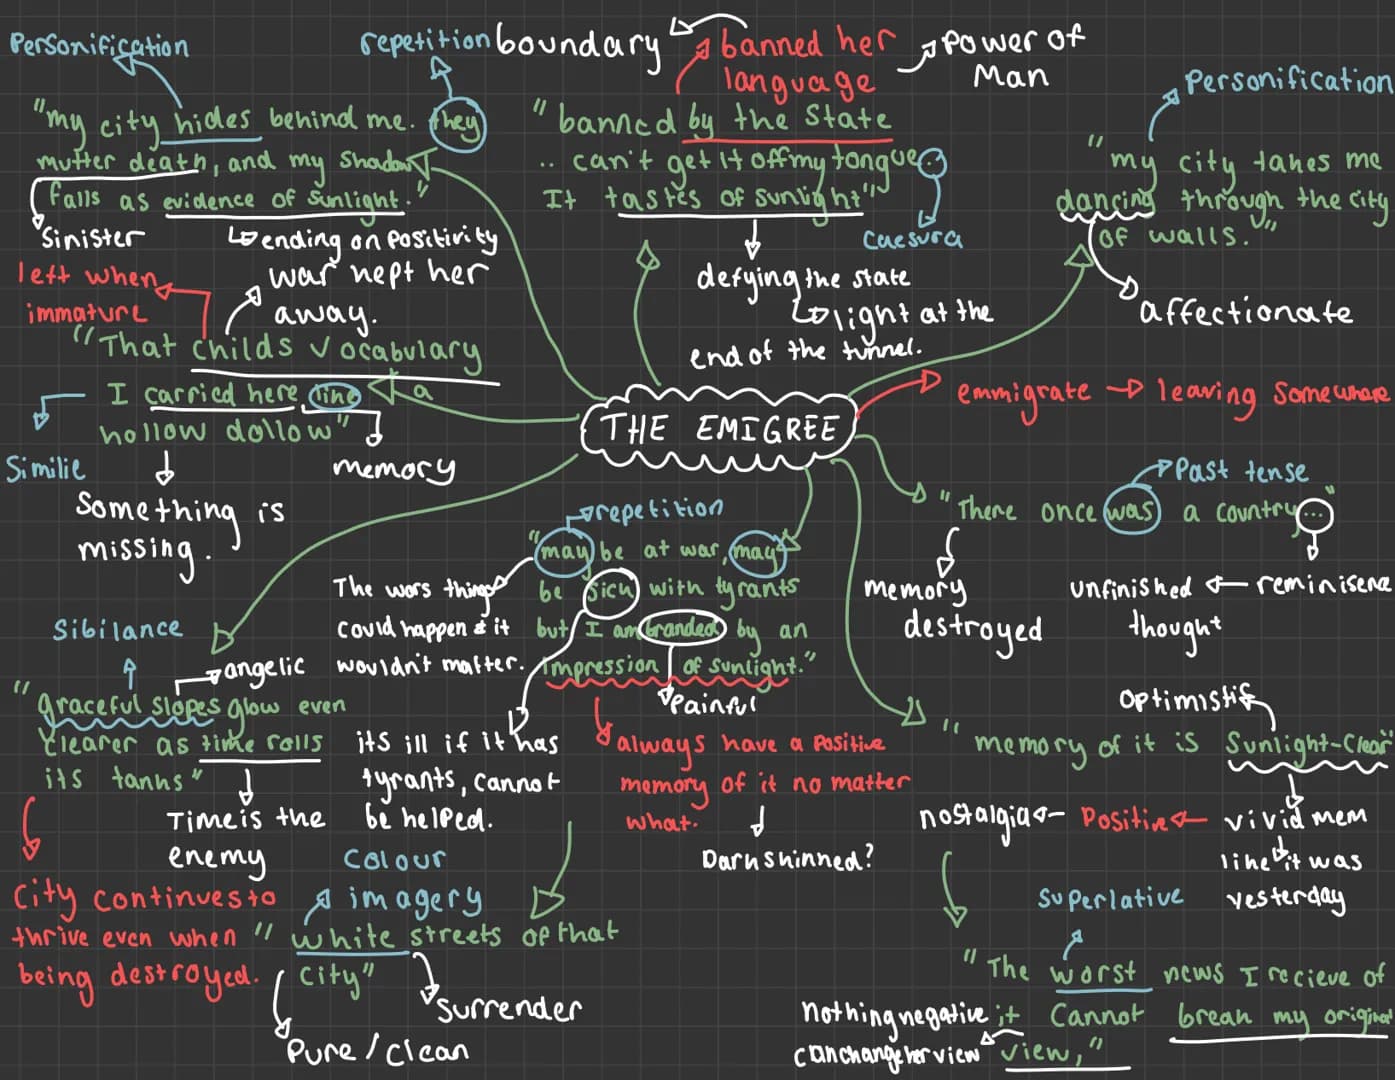 Personification
"my city hides behind me. they
mutter death, and my shadow
falls as evidence of sunlight."
Sinister
ending on positivity
repetition
boundary
banned her
language
Power of
Man
"banned by the State
.. can't get it off my tongue..
It tastes of sunlight"
Caesura
defying the state
light at the
end of the tunnel.
Personification
"my city takes me
dancing through the city
of walls."
affectionate
left when
immature
war kept her
away.
"That childs vocabulary
I carried here like a
hollow dollow"
Similie
memory
Something is
missing.
THE EMIGREE
emmigrate → leaving Somewhere
Past tense
"There once was a country..."
memory
destroyed
reminisence
unfinished
thought
repetition
"may be at war, may
be sick with tyrants
but I am branded by an
impression of sunlight."
The wors thing
could happen & it
wouldn't matter.
its ill if it has
tyrants, cannot
be helped.
Painful
always have a positive
memory of it no matter
what.
Darkskinned?
Sibilance
angelic
"graceful slopes glow even
clearer as time rolls
its tanks"
Time is the
enemy
City continues to
thrive even when
being destroyed.
Colour
imagery
"white streets of that
city"
Surrender
Pure/clean
optimistic
"memory of it is Sunlight-Clear"
vivid mem
like it was
yesterday
Positive
nostalgia
Superlative
"The worst news I recieve of
it Cannot break my original
view,"
nothing negative
can change her view